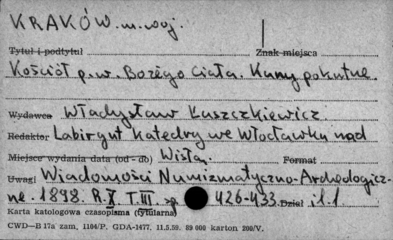 KRAKÓW. m. woj.
Tytuł i podtytuł Znak miejsca
Kościół p.w. Bożego Ciała. Kuny pokutne.
Wydawca Władysław Łuszczkiewicz.
Redaktor Labirynt Katedry we Włocławku nad
Miejsce wydania data (od - do) Wisłą. Format
Uwagi Wiadomości Numizmatyczno-Archeologicz-
ne. 1898. R.X T.III. sp. 426-433. Dział il. 1.
Karta katologowa czasopisma (tytularna)
CWD—B 17a zam. 1104/P. GDA-1477. 11.5.59. 89 000 karton 200/V.